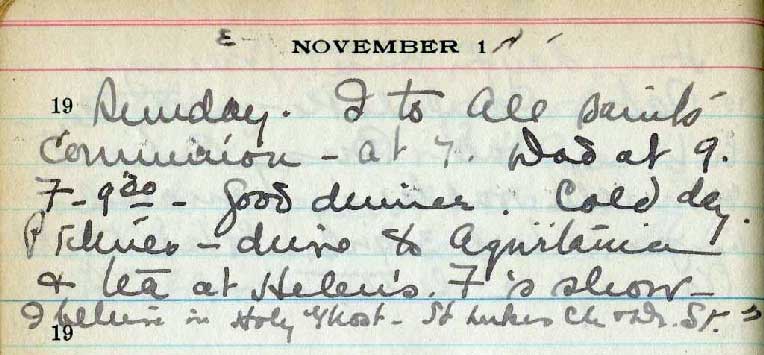 NOVEMBER 1
19 Sunday. I to All Saints
Communion - at 7. Dad at 9.
7 - 9³⁰ - good dinner. Cold day.
P - drive to Aquitania
& tea at Helen's. F's show -
I believe in Holy Ghost - St Lukes Ch & Dr. St.
19